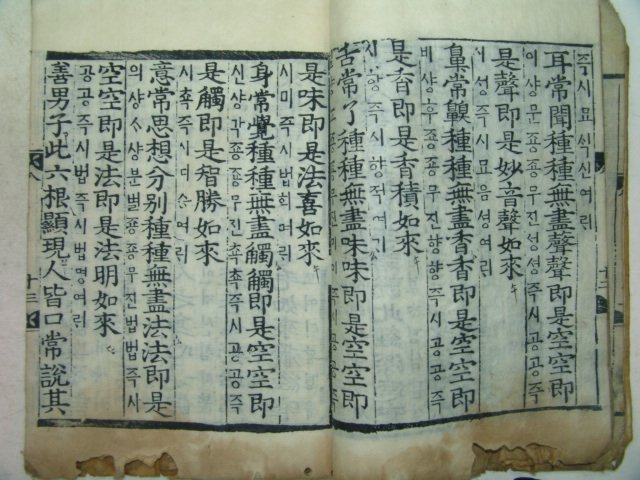 즉시묘식신여ᄅᆡ
耳常聞種種無盡聲聲即是空空即
이샹문죵죵무진셩셩즉시공공즉
是聲即是妙音聲如來
시셩즉시묘음셩여ᄅᆡ
鼻常齅種種無盡香香即是空空即
비샹후죵죵무진향향즉시공공즉
是香即是香積如來
시향즉시향젹여ᄅᆡ
舌常了種種無盡味味即是空空即
是味即是法喜如來
시미즉시법희여ᄅᆡ
身常覺種種無盡觸觸即是空空即
신샹각죵죵무진쵹쵹즉시공공즉
是觸即是智勝如來
시쵹즉시디승여ᄅᆡ
意常思想分別種種無盡法法即是
의샹ᄉᆞ샹분별죵죵무진법법즉시
空空即是法即是法明如來
공공즉시법즉시법명여ᄅᆡ
善男子此六根顯現人皆口常說其
八
十三